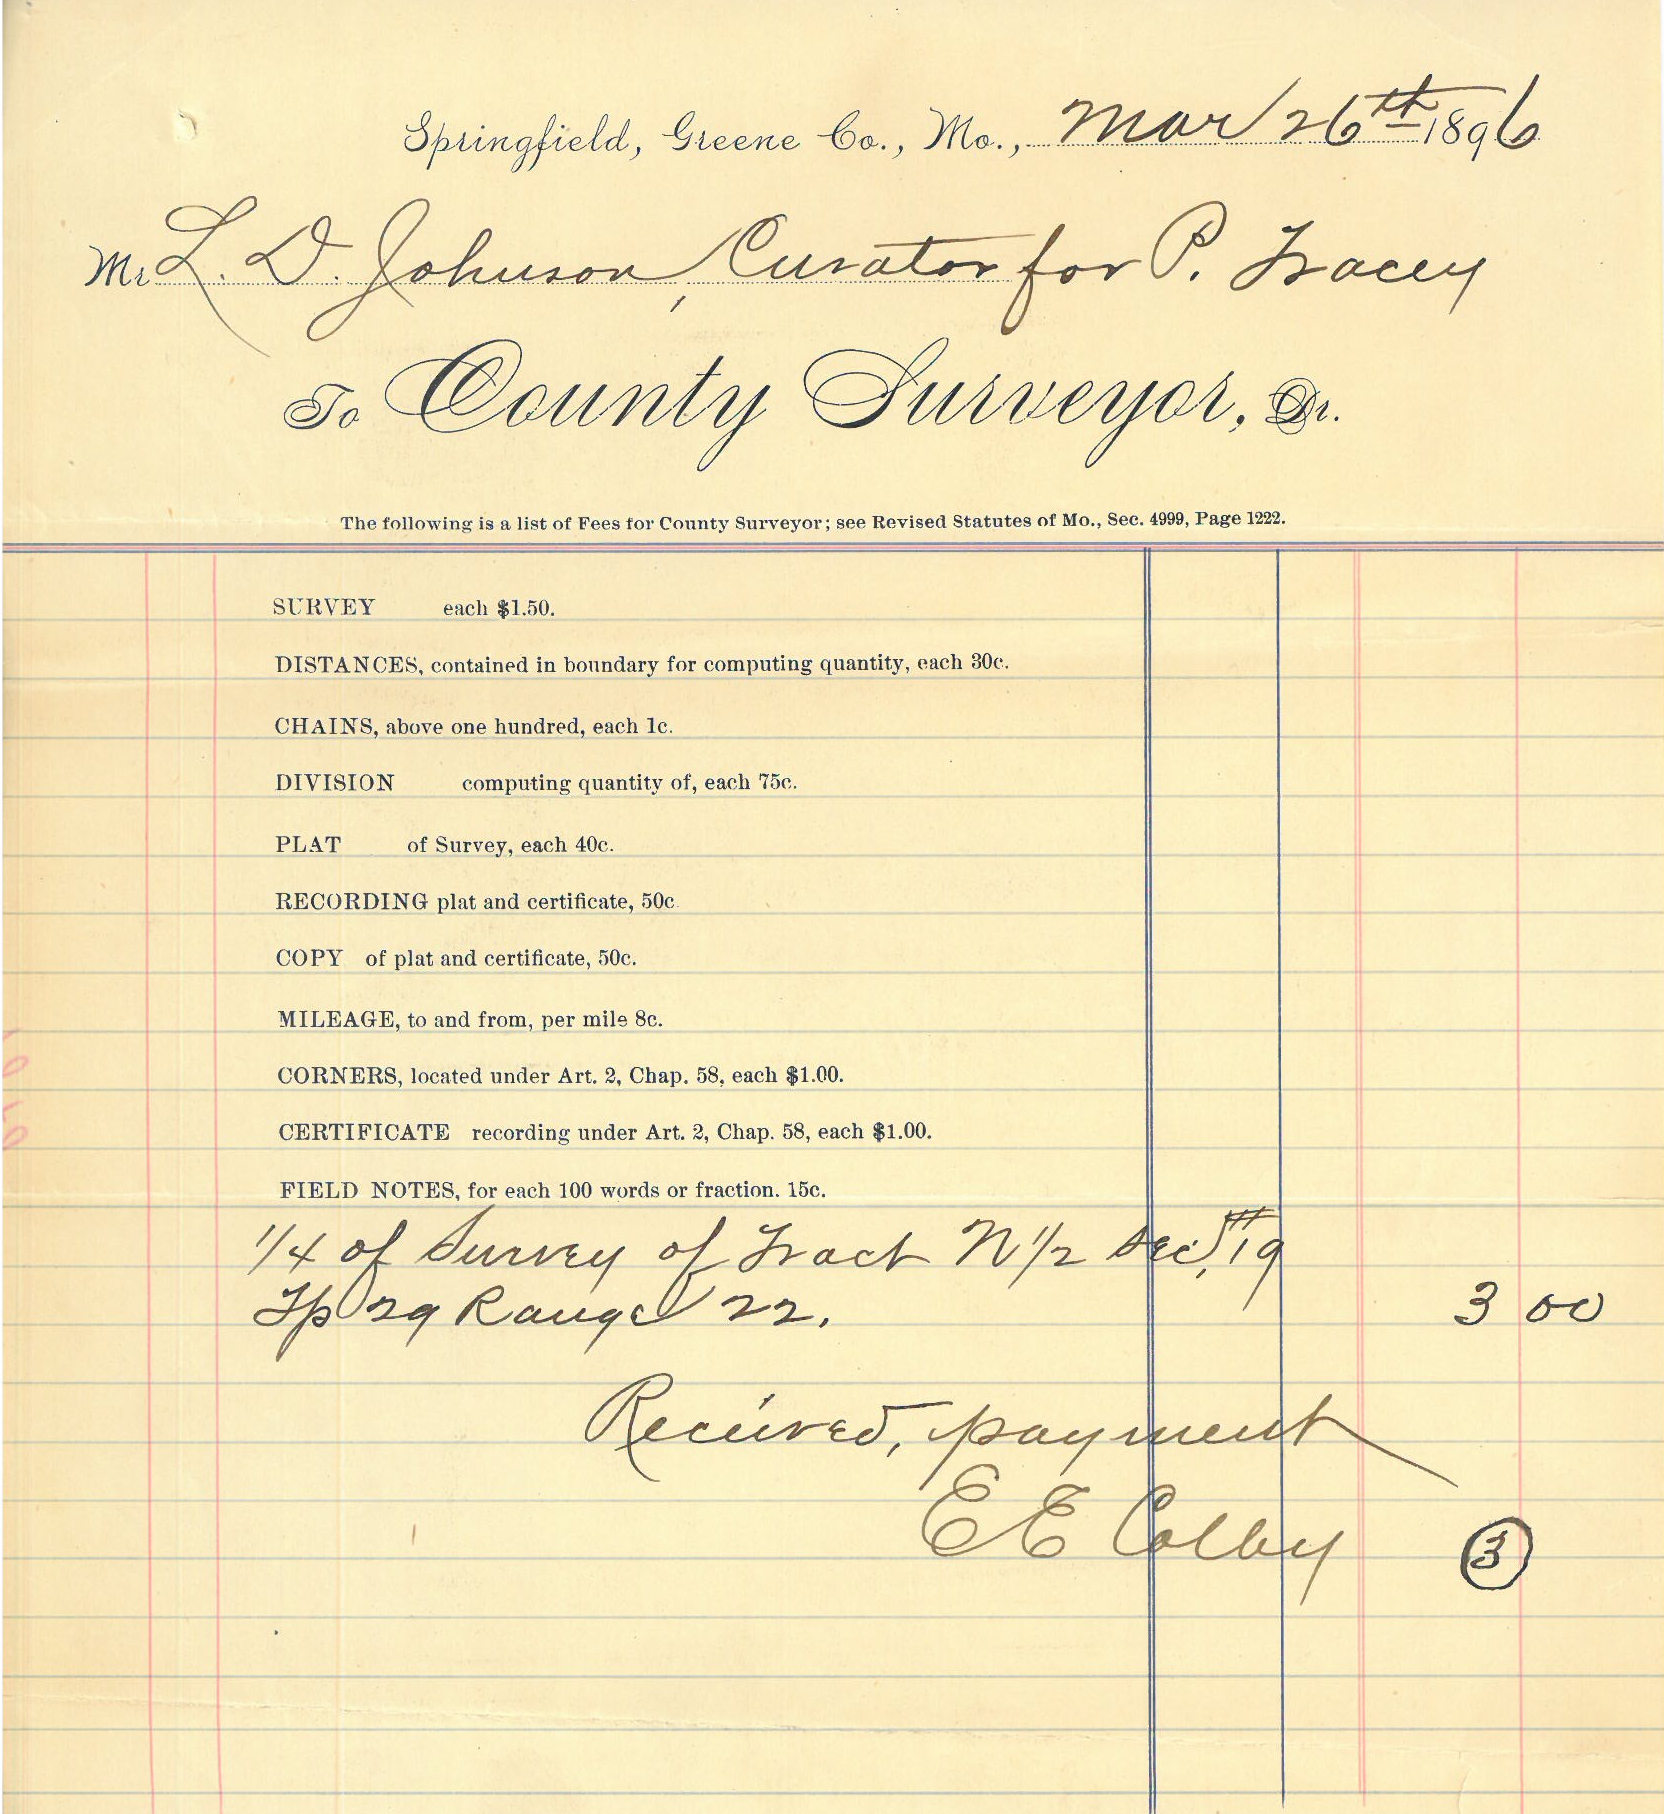 Springfield, Greene Co., Mo., Mar 26th 1896
Mr L. D. Johnson, Curator for P. Tracey
To County Surveyor, Dr.
The following is a list of Fees for County Surveyor; see Revised Statutes of Mo., Sec. 4999, Page 1222.
SURVEY each $1.50.
DISTANCES, contained in boundary for computing quantity, each 30c.
CHAINS, above one hundred, each 1c.
DIVISION computing quantity of, each 75c.
PLAT of Survey, each 40c.
RECORDING plat and certificate, 50c.
COPY of plat and certificate, 50c.
MILEAGE, to and from, per mile 8c.
CORNERS, located under Art. 2, Chap. 58, each $1.00.
CERTIFICATE recording under Art. 2, Chap. 58, each $1.00.
FIELD NOTES, for each 100 words or fraction. 15c.
1/4 of Survey of Tract N 1/2 Sec, 19
Tp 29 Range 22. 3 00
Received, payment
E E Colby
3